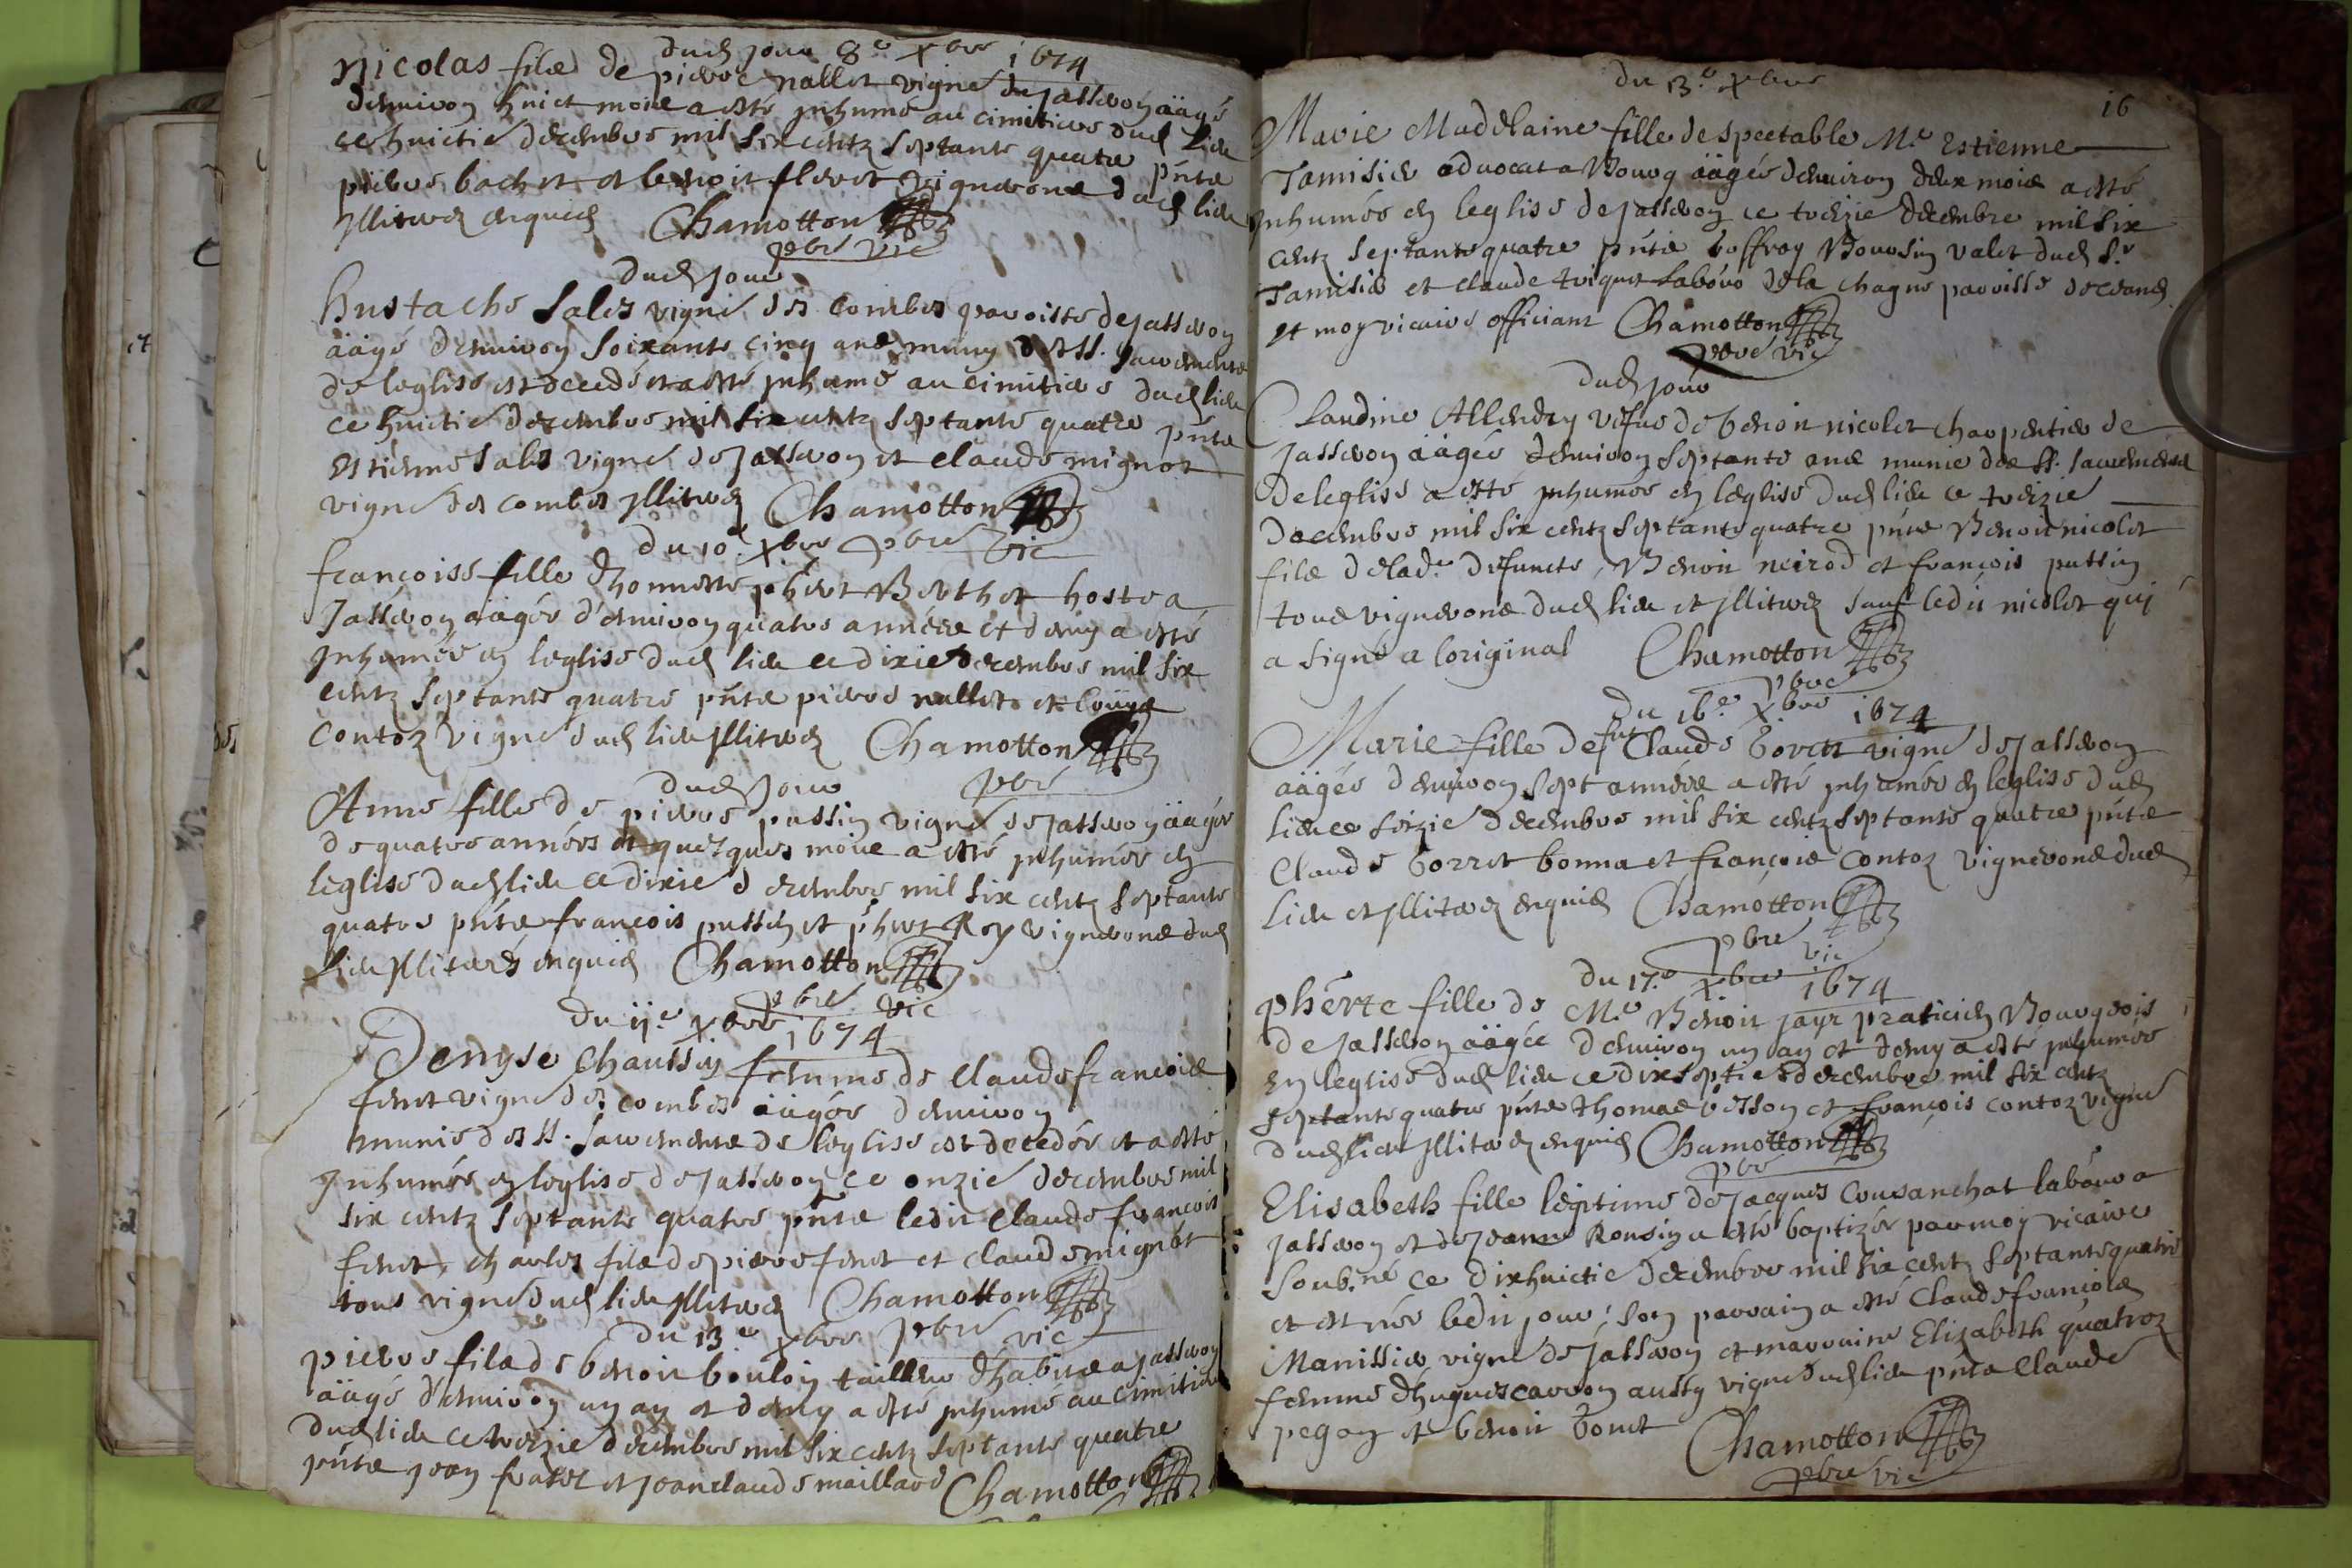 dud jour 8.e xbre 1674
Nicolas filz de pierre nallet vigne de Jasseron äagé
denuiron huict mois a esté jnhumé au cimitiere dud lieu
ce huictie decembre mil six centz septante quatre pnts
pierre bachet et benoit floret vignerons dud lieu
jllitrez enquis Chamotton
pbre vic
dud jour
Eustache Sales vigne des combes parroisse de Jasseron
äagé denuiron soixante cinq ans muny des SS. sacrements
de leglise est decedé et a esté jnhumé au cimitiere dud lieu
ce huictie decembre mil six centz septante quatre pnts
Estienne Sales vigne de Jasseron et claude mignot
vigne des combes jllitrez Chamotton
du 10.e xbre pbre vic
françoise fille dhonneste phert Berthet hoste a
Jasseron äagée d'enuiron quatre années et demy a esté
jnhumée en leglise dud lieu ce dixie decembre mil six
centz septante quatre pnts pierre nallet et
Contoz vigne dud lieu jllitrez Chamotton
dud jour pbre
Anne fille de pierre pussin vigne de Jasseron äagée
de quatre années et quelques mois a esté jnhumée en
leglise dud lieu ce dixie decembre mil six centz septante
quatre pnts françois pussin et phert Rey vignerons dud
lieu jllitrez enquis Chamotton
pbre vic
du 11.e xbre 1674
Denyse Chaussin femme de claude françois
feret vigne des combes äagée denuiron
munie des SS. sacrements de leglise est decedée et a esté
jnhumée en leglise de Jasseron ce onzie decembre mil
six centz septante quatre pnts ledit claude françois
feret, charles filz de pierre feret et claude mignot
tous vigne dud lieu jllitrez Chamotton
du 13.e xbre pbre vic
pierre filz de benoit boulon tailleur dhabits a Jasseron
äagé d'enuiron un an et demy a esté jnhumé au cimitiere
dud lieu ce trezie decembre mil six centz septante quatre
pnts jean frater et jean claude maillard Chamotton
du 13.e xbre
16
Marie Madelaine fille de spectable M.e Estienne
Tamisier aduocat a Bourg äagée denuiron deux mois a esté
jnhumée en leglise de Jasseron ce trezie decembre mil six
centz septante quatre pnts Boffray Boursin valet dud S.r
Tamisier et claude triquet labour de la chagne parroisse
et moy vicaire officiant Chamotton
pbre vic
dud jour
Claudine Allendry vefue de benoit nicolet charpentier de
Jasseron äagée denuiron septante ans munie des SS. sacrements
de leglise a esté jnhumée en leglise dud lieu ce trezie
decembre mil six centz septante quatre pnts Benoit nicolet
filz de lad.e defuncte, Benoit neirod et françois pussin
tous vignerons dud lieu et jllitrez sauf ledit nicolet qui
a signé a loriginal Chamotton
pbre
du 16.e xbre 1674
Marie fille de fut Claude borret vigne de Jasseron
äagée d'enuiron sept années a esté jnhumée en leglise dud
lieu ce sezie decembre mil six centz septante quatre pnts
Claude borret bonna et françois contoz vignerons dud
lieu et jllitrez enquis Chamotton
pbre vic
du 17.e xbre 1674
pherte fille de M.e Benoit jayr praticien Bourgeois
de Jasseron äagée denuiron un an et demy a esté jnhumée
en leglise dud lieu ce dixseptie decembre mil six centz
septante quatre pnts Thomas besson et françois contoz vigne
dud lieu jllitrez enquis Chamotton
pbre
Elisabeth fille legitime de Jacques Cousanchat labour a
Jasseron et de Jeanne Rousin a esté baptizée par moy vicaire
soub.né ce dixhuictie decembre mil six centz septante quatre
et est née ledit jour; son parrain a esté Claude françois
Manissier vigne de Jasseron et marraine Elizabeth quatroz
femme dhugues carron aussy vigne dud lieu pnts Claude
pegoz et benoit bonet Chamotton
pbre vic